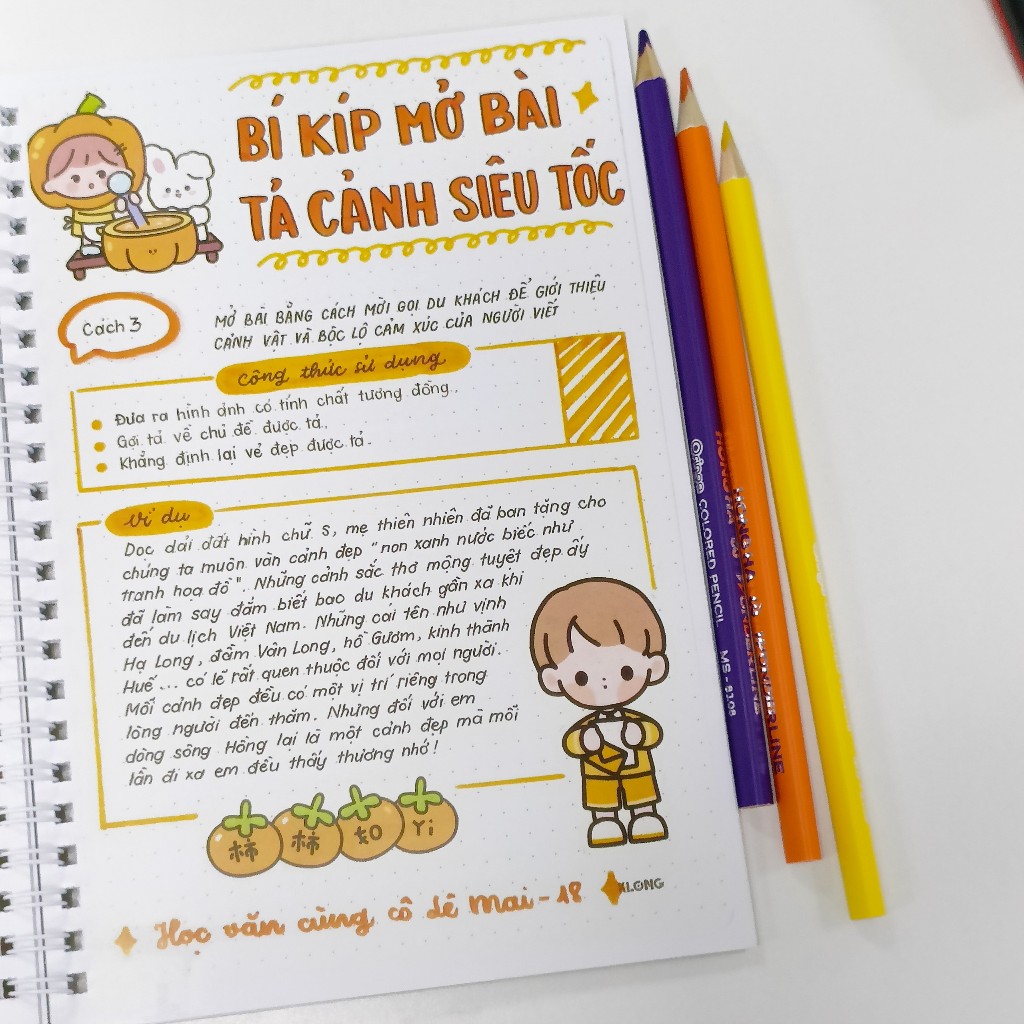 BÍ KÍP MỞ BÀI
TẢ CẢNH SIÊU TỐC
Cách 3
MỞ BÀI BẰNG CÁCH MỜI GỌI DU KHÁCH ĐỂ GIỚI THIỆU
CẢNH VẬT VÀ BỘC LỘ CẢM XÚC CỦA NGƯỜI VIẾT
Công thức sử dụng
Đưa ra hình ảnh có tính chất tương đồng.
Gợi tả về chủ đề được tả.
Khẳng định lại vẻ đẹp được tả.
Ví dụ
Dọc dải đất hình chữ S, mẹ thiên nhiên đã ban tặng cho
chúng ta muôn vàn cảnh đẹp "non xanh nước biếc như
tranh hoạ đồ". Những cảnh sắc thơ mộng tuyệt đẹp ấy
đã làm say đắm biết bao du khách gần xa khi
đến du lịch Việt Nam. Những cái tên như vịnh
Hạ Long, đầm Vân Long, hồ Gươm, kinh thành
Huế... có lẽ rất quen thuộc đối với mọi người.
Mỗi cảnh đẹp đều có một vị trí riêng trong
lòng người đến thăm. Nhưng đối với em
dòng sông Hồng lại là một cảnh đẹp mà mỗi
lần đi xa em đều thấy thương nhớ!
柿 柿 如 Yi
Học văn cùng cô dê Mai - 18
XLONG
COLORED PENCIL MS-8108